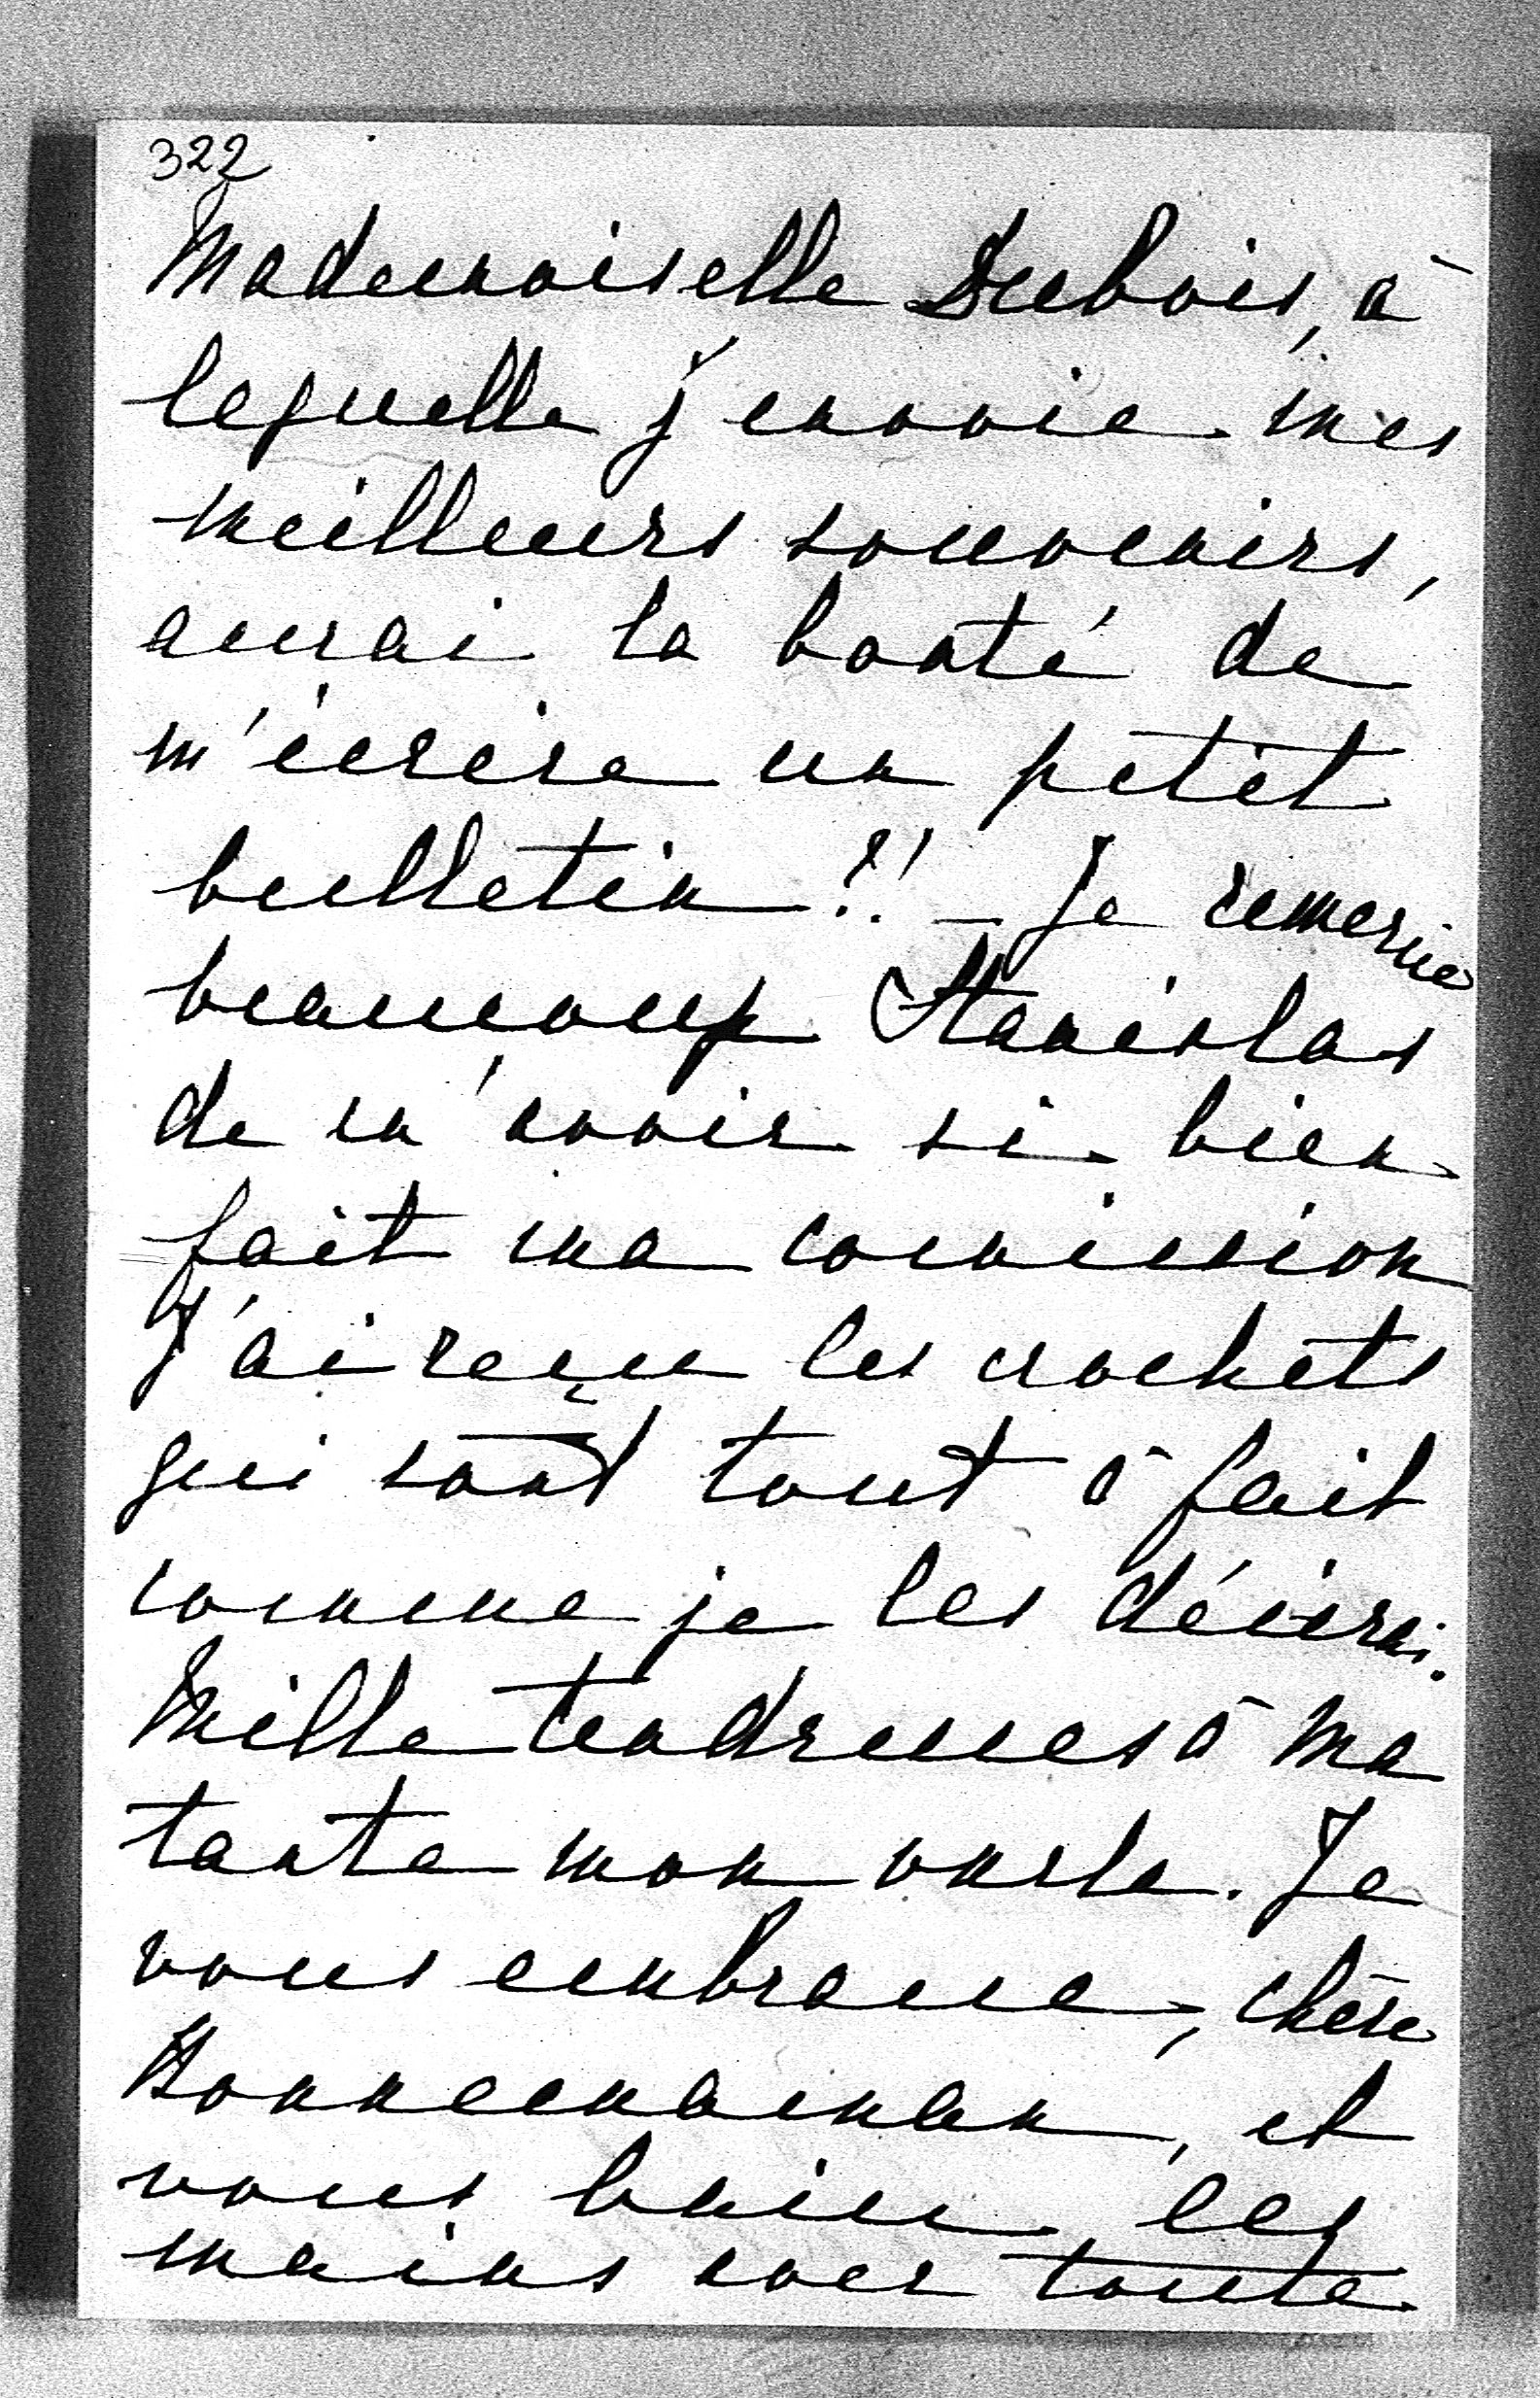 322
Mademoiselle Dubois, à
laquelle j'envoie mes
meilleurs souvenirs,
aurai la bonté de
m'écrire un petit
bulletin ?! — Je remercie
beaucoup Stanislas
de m'avoir si bien
fait ma comission
J'ai reçu les crochets
qui sont tout à fait
comme je les désirai.
Mille tendresses à ma
tante mon oncle. Je
vous embrasse, chère
Bonnemaman, et
vous baise les
mains avec toute